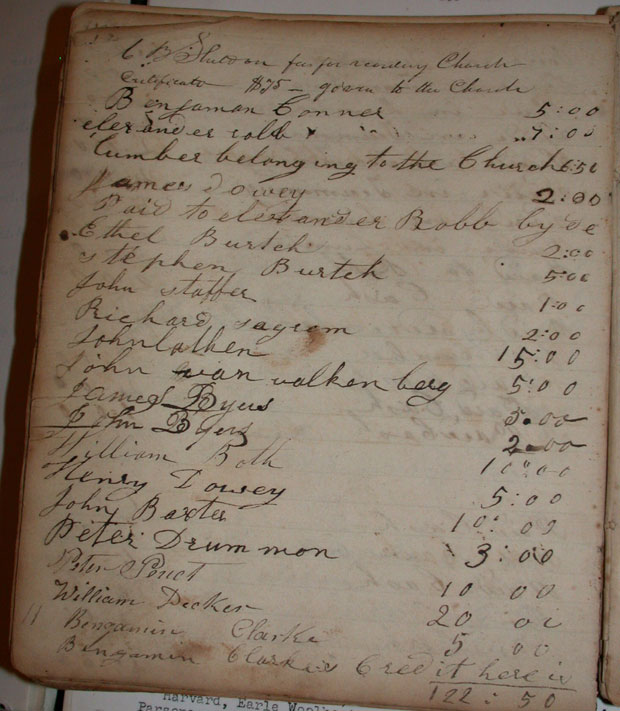 C B Slutson fee for recording Church
Certificate $75 - given to the Church
Benjaman Conner 5:00
elexander robb x " " ..7:00
lumber belonging to the Church 6:50
James dowey 2:00
Paid to elexander Robb by de
Ethel Burtch 2:00
stephen Burtch 5:00
John staffer 1:00
Richard sagrom 2:00
John lathen 15:00
John van valkenberg 5:00
James Byers 5.00
John Byers 2.00
William Both 10:00
Henry Dowey 5:00
John Baxter 10:00
Peter Drummon 3:00
Peter 10 00
William Decker 20 00
11 Bengamin Clarke 5 00
Bengamin Clarke is Credit here is
122:50
Harvard, Earle